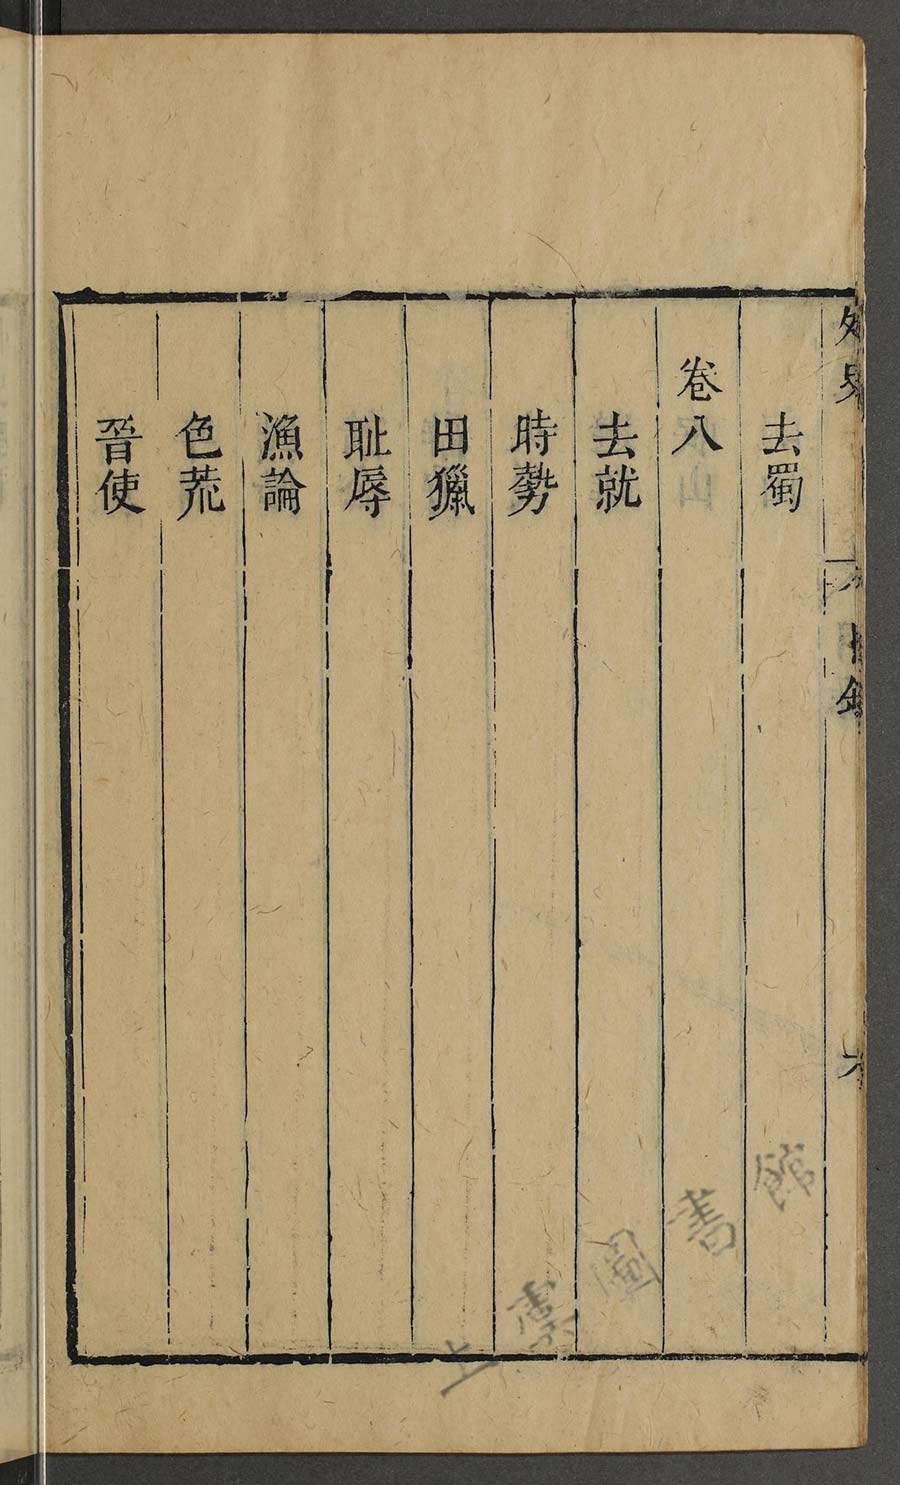 去蜀
卷八
去就
時勢
田獵
耻辱
漁論
色荒
晉使
上 圖書館